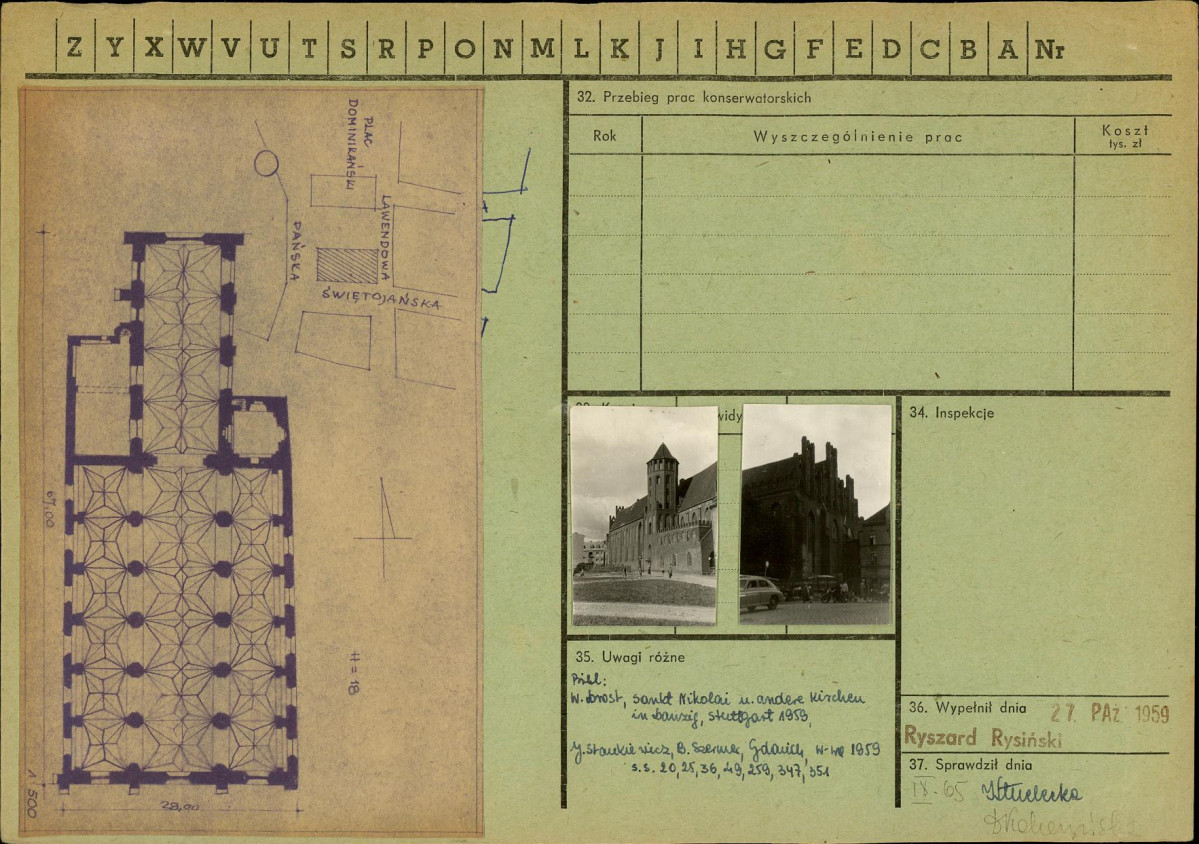 Z Y X W V U T S R P O N M L K J I H G F E D C B A Nr
PLAC
DOMINIKAŃSKI
LAWENDOWA
PAŃSKA
ŚWIĘTOJAŃSKA
67,00
H = 18
28,00
1:500
32. Przebieg prac konserwatorskich
Rok
Wyszczególnienie prac
Koszt
tys. zł
34. Inspekcje
35. Uwagi różne
W. Drost, Sankt Nikolai u. andere Kirchen
in Danzig, Stuttgart 1959,
J. Stankiewicz, B. Szermer, Gdańsk, W-wa 1959
s.s. 20, 25, 36, 49, 259, 347, 351
36. Wypełnił dnia 27. PAŹ 1959
Ryszard Rysiński
37. Sprawdził dnia
IX-65